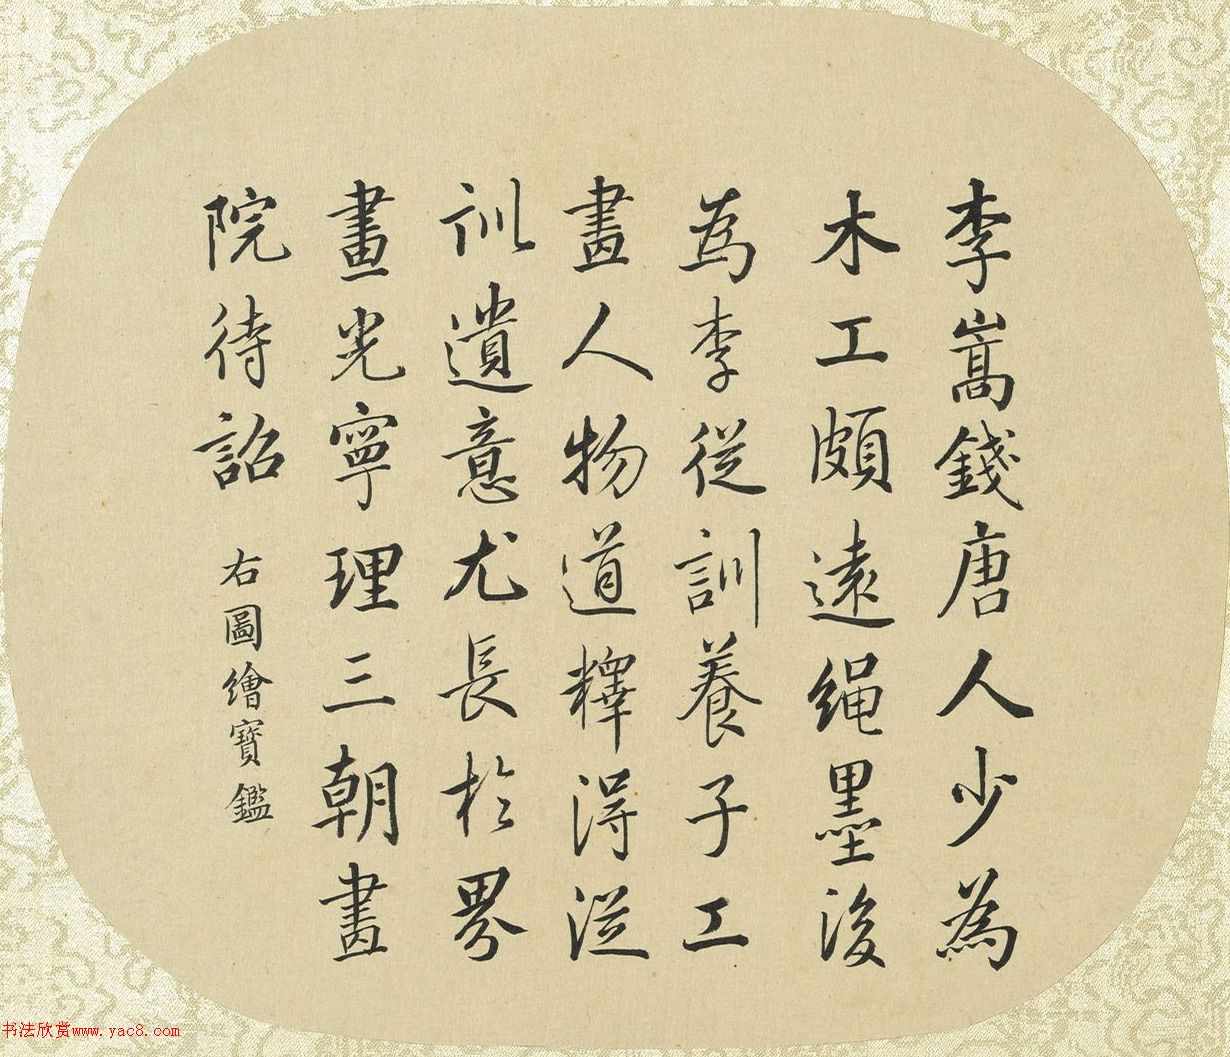 李嵩錢唐人少為
木工頗遠繩墨後
為李從訓養子工
畫人物道釋得從
訓遺意尤長於界
畫光寧理三朝畫
院待詔
右圖繪寶鑑
书法欣赏www.yac8.com